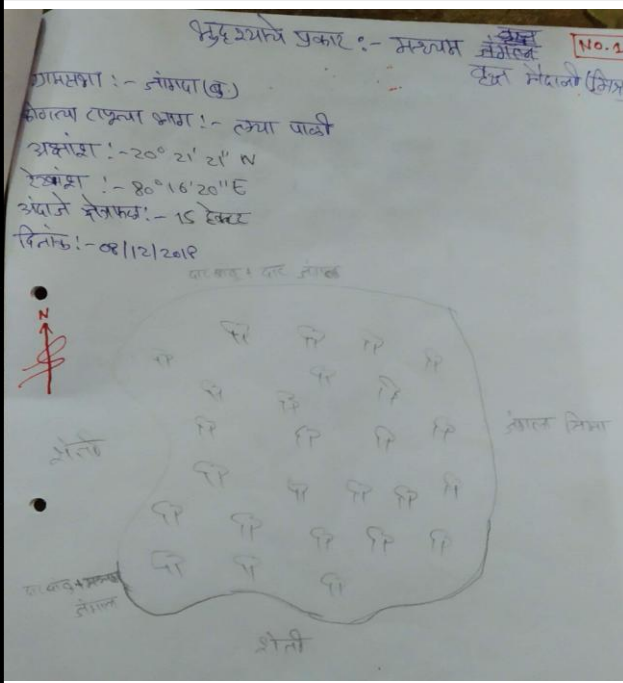 भुदृश्याचे प्रकार :- मध्यम जंगल
NO. 1
वृक्ष मैदानी (मिश्र
ग्रामसभा :- जांभदा (बु.)
भाग :- तम्या पाळी
अक्षांश :- 20° 21' 21" N
रेखांश :- 80° 16' 20" E
अंदाजे क्षेत्रफळ :- 15 हेक्टर
दिनांक :- 08/12/2018
जंगल
N
शेती
जंगल सिमा
जंगल
शेती